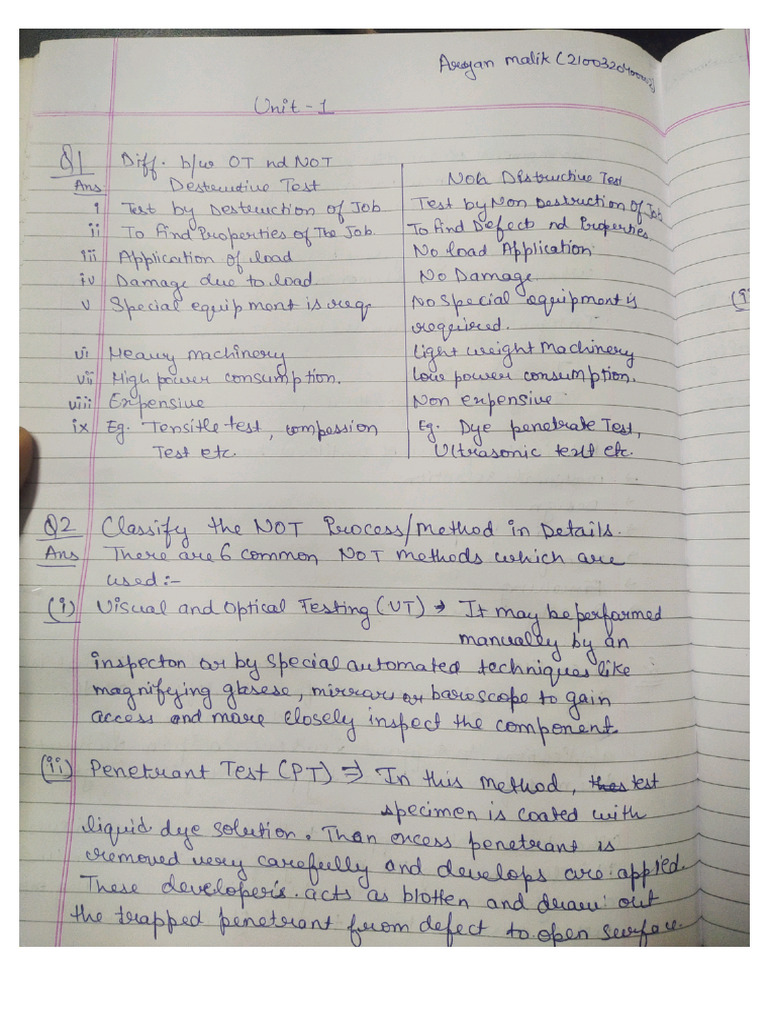 Aryan Malik (2100320400002)
Unit - 1
Q1 Diff. b/w DT nd NDT
Ans Destructive Test Non Distructive Test
i Test by Destruction of Job Test by Non Destruction of Job
ii To Find Properties of The Job. To find Defects nd Properties.
iii Application of load No load Application
iv Damage due to load. No Damage
v Special equipment is req. No special equipment is
required.
vi Heavy machinery Light weight Machinery
vii High power consumption. Low power consumption.
viii Expensive Non expensive
ix Eg. Tensitle test, compession Eg. Dye penetrate Test,
Test etc. Ultrasonic text etc.
Q2 Classify the NDT Process/Method in Details.
Ans There are 6 common NDT methods which are
used:-
(i) Visual and Optical Testing (VT) → It may be perfarmed
manually by an
inspecton or by special automated techniques like
magnifying glasese, mirrar or baroscope to gain
access and more closely inspect the component
(ii) Penetrant Test (PT) ⇒ In this method, test
specimen is coated with
liquid dye solution. Than excess penetrant is
removed very carefully and develops are applied.
These developer's acts as blotten and draw out
the trapped penetrant from defect to open surface.